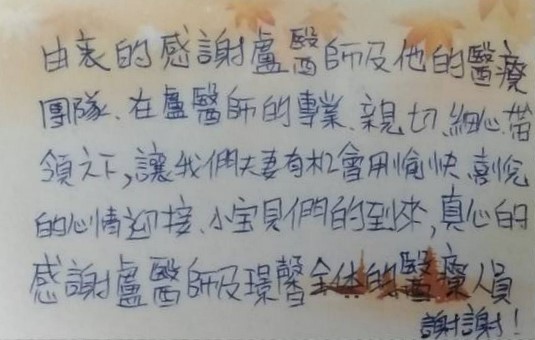 由衷的感謝盧醫師及他的醫療
團隊、在盧醫師的專業、親切、細心帶
領之下,讓我們夫妻有机會用愉快、喜悅
的心情迎接、小宝貝們的到來,真心的
感謝盧醫師及璟馨全体的醫療人員
謝謝!